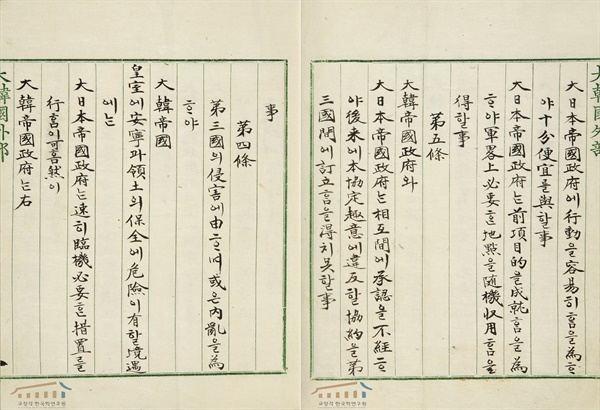 事
第四條
第三國의侵害에由ᄒᆞ며或은內亂을為
ᄒᆞ야
大韓帝國
皇室에安寧과領土의保全에危險이有ᄒᆞᆯ境遇
에는
大日本帝國政府는速히臨機必要ᄒᆞᆫ措置를
行ᄒᆞᆷ이可ᄒᆞᆷ然이
大韓帝國政府는右
大韓國外部
大韓國外部
大日本帝國政府에行動을容易히ᄒᆞᆷ을為ᄒᆞ
야十分便宜를與ᄒᆞᆯ事
大日本帝國政府는前項目的을成就ᄒᆞᆷ을為
ᄒᆞ야軍畧上必要ᄒᆞᆫ地點을隨機収用ᄒᆞᆷ을
得ᄒᆞᆯ事
第五條
大韓帝國政府와
大日本帝國政府는相互間에承認을不經ᄒᆞ
야後來에本協定趣意에違反ᄒᆞᆯ協約을第
三國間에訂立ᄒᆞᆷ을得치못ᄒᆞᆯ事
규장각한국학연구원
규장각한국학연구원